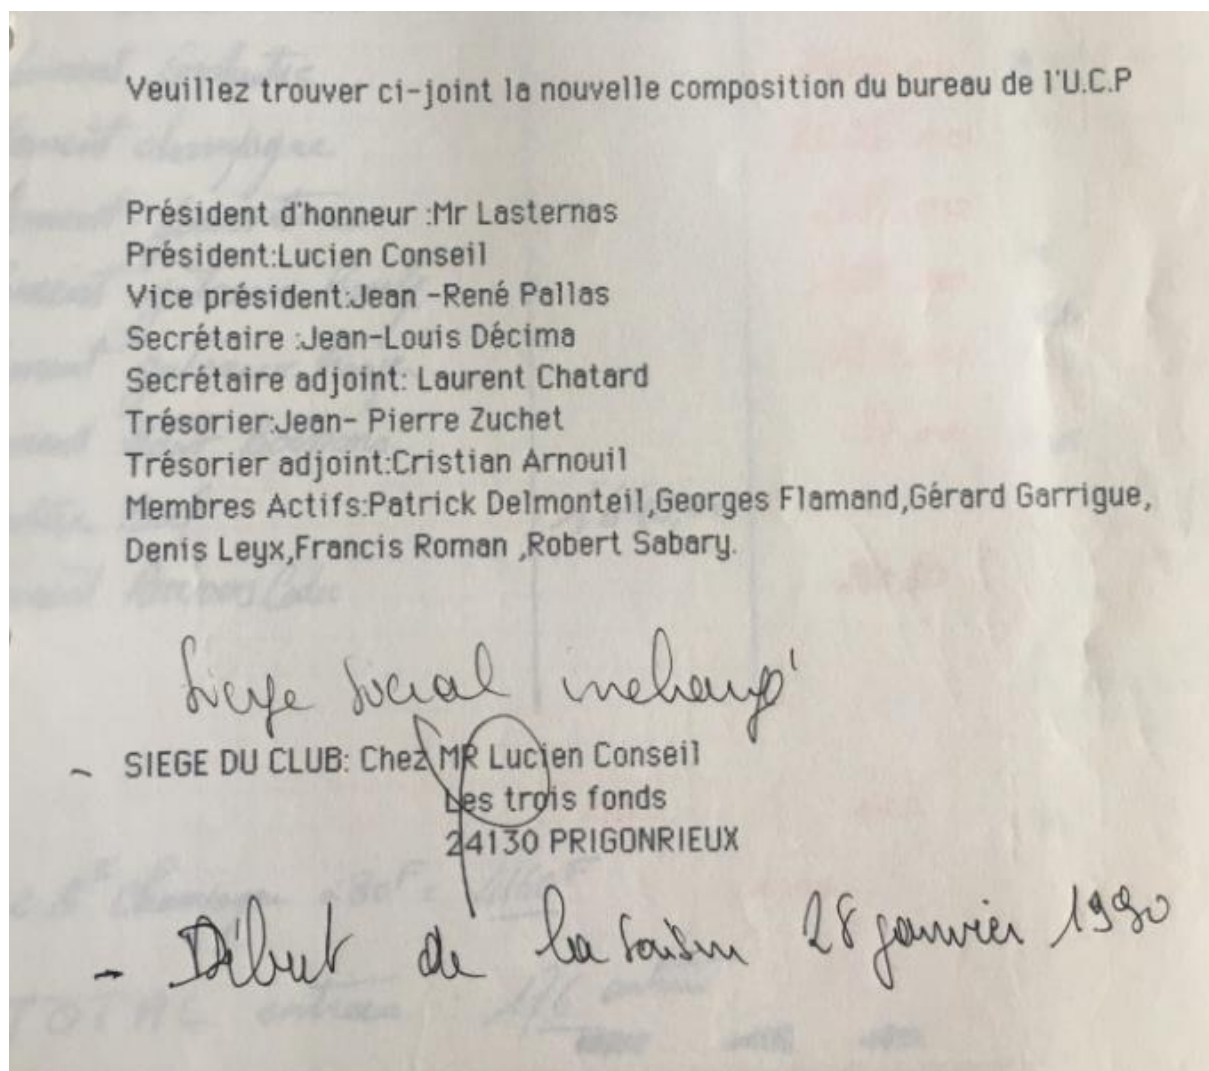 Veuillez trouver ci-joint la nouvelle composition du bureau de l'U.C.P
Président d'honneur :Mr Lasternas
Président:Lucien Conseil
Vice président:Jean -René Pallas
Secrétaire :Jean-Louis Décima
Secrétaire adjoint: Laurent Chatard
Trésorier:Jean- Pierre Zuchet
Trésorier adjoint:Cristian Arnouil
Membres Actifs:Patrick Delmonteil,Georges Flamand,Gérard Garrigue,
Denis Leyx,Francis Roman ,Robert Sabary.
Siege Social inchangé
- SIEGE DU CLUB: Chez MR Lucien Conseil
Les trois fonds
24130 PRIGONRIEUX
- Début de la saison 28 janvier 1990
TOTAL 176